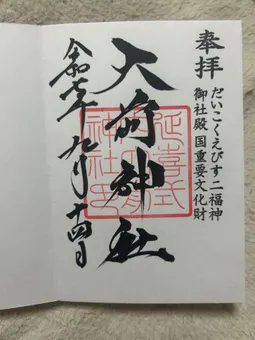 奉拝
だいこくえびす二福神
御社殿国重要文化財
大前神社
延喜式
神社印
令和七年九月十四日